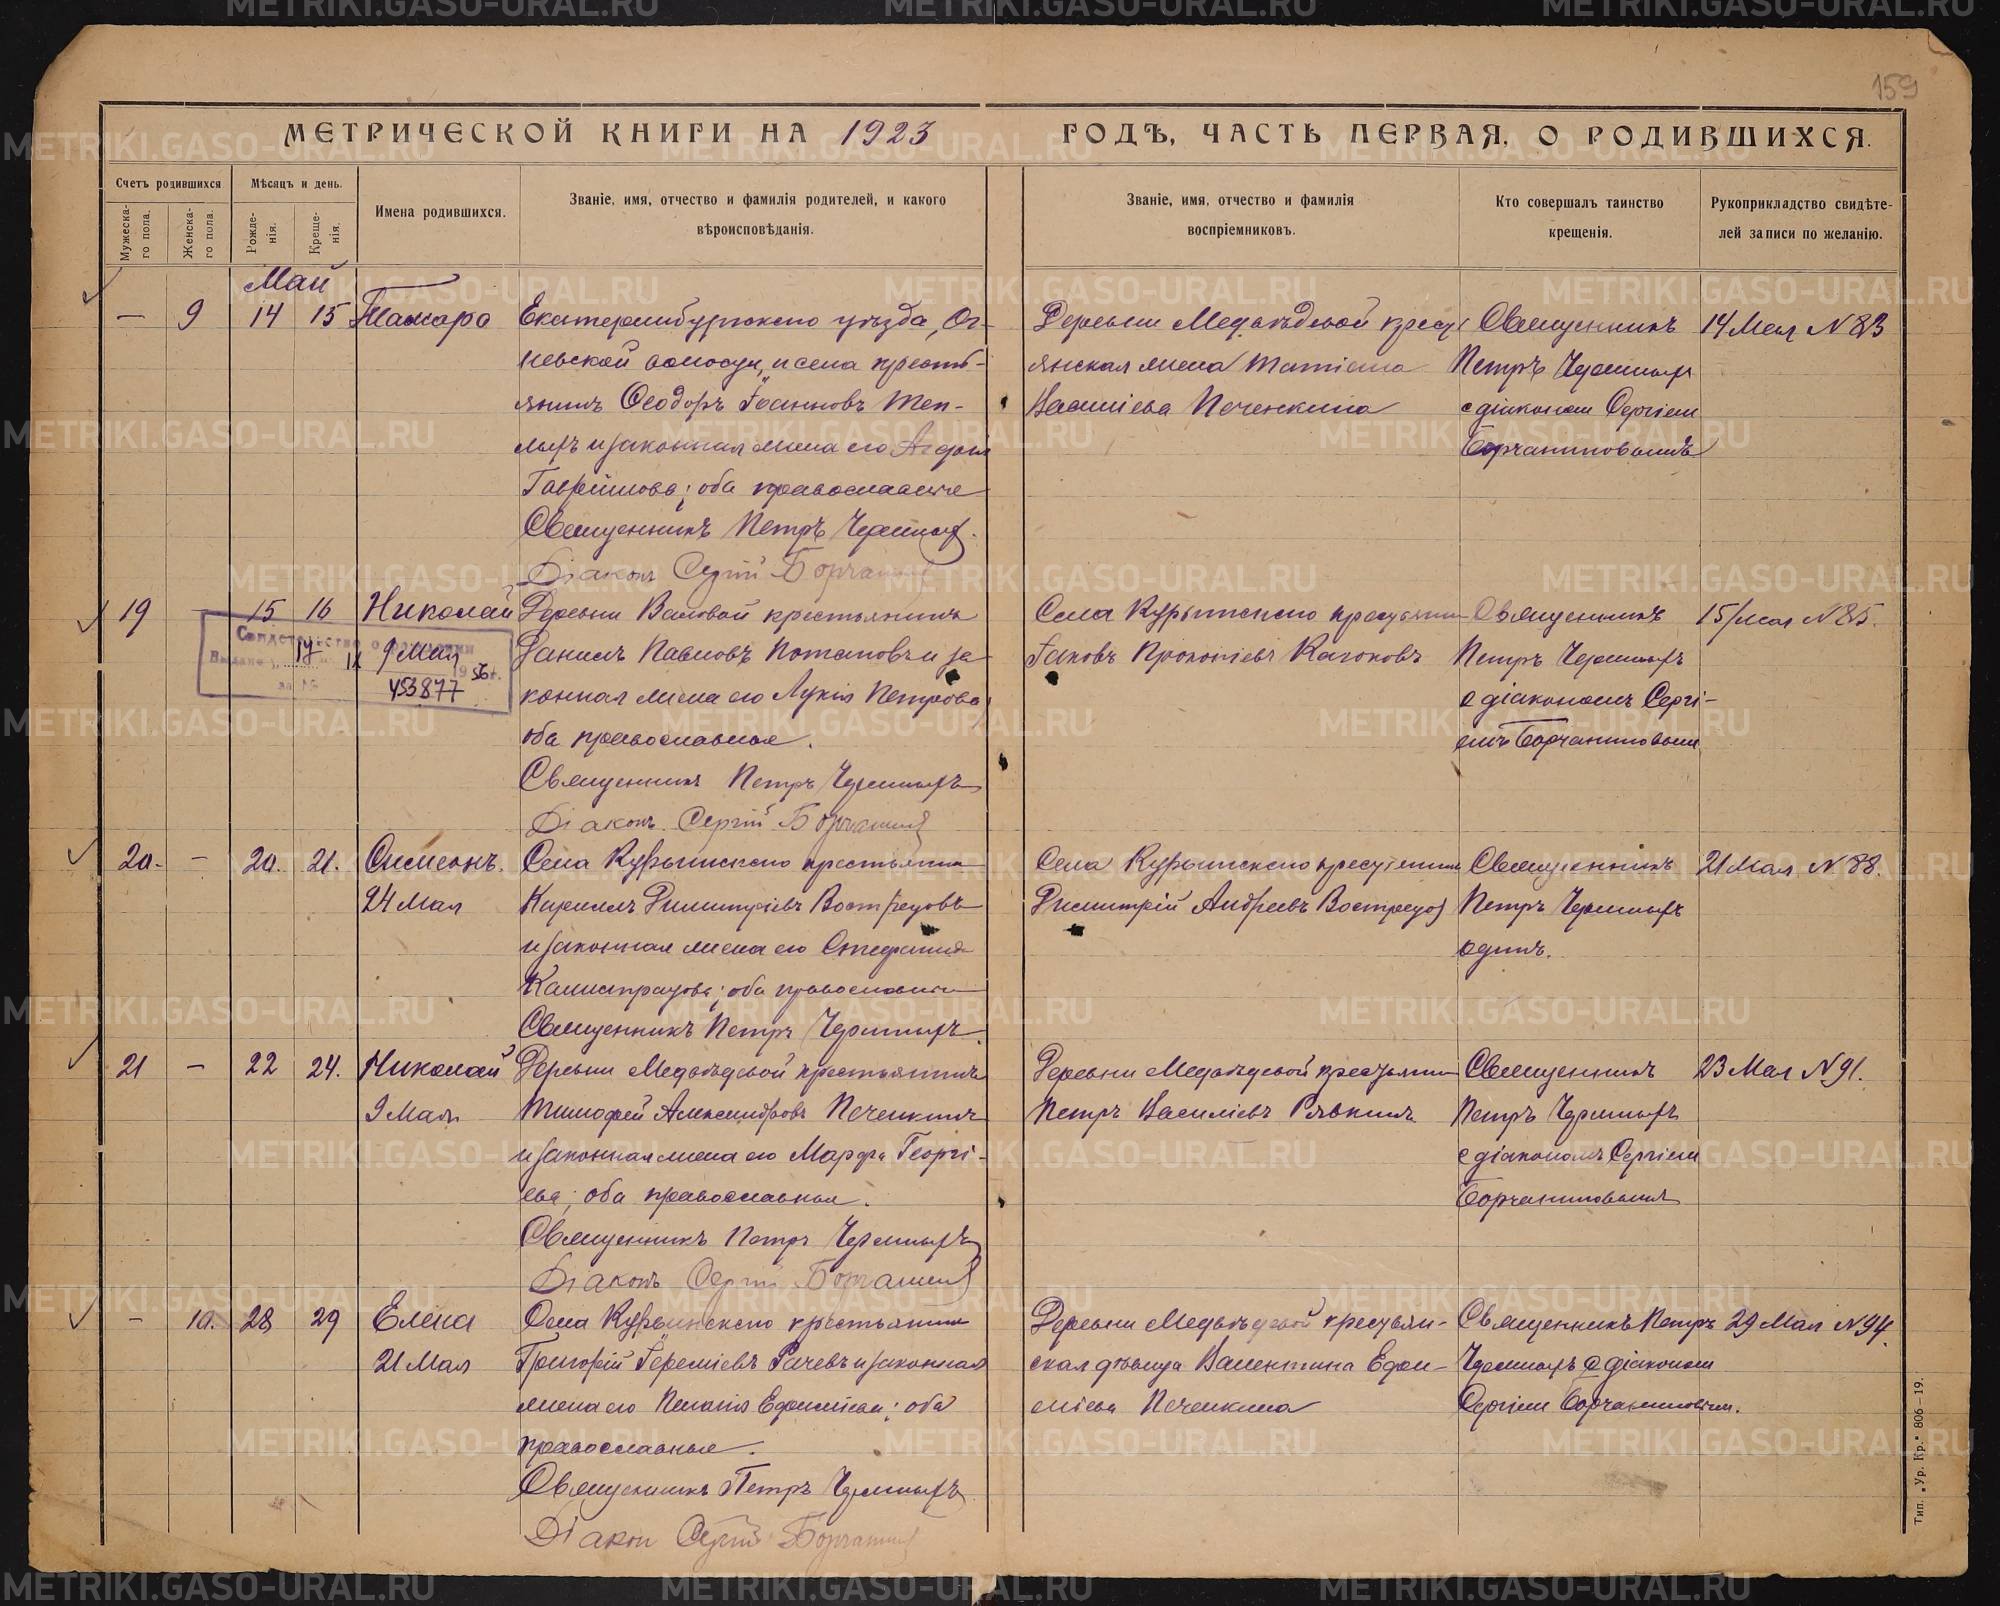 159
МЕТРИЧЕСКОЙ КНИГИ НА 1923 ГОДЪ, ЧАСТЬ ПЕРВАЯ, О РОДИВШИХСЯ.
Счетъ родившихся
Мужеска-го пола.
Женска-го пола.
Мѣсяцъ и день.
Рожде-нія.
Креще-нія.
Имена родившихся.
Званіе, имя, отчество и фамилія родителей, и какого
вѣроисповѣданія.
Званіе, имя, отчество и фамилія
воспріемниковъ.
Кто совершалъ таинство
крещенія.
Рукоприкладство свидѣте-
лей записи по желанію.
Май
— 9 14 15 Тамара
Екатеринбургскаго уѣзда, Ог-
невской волости, и села кресть-
янинъ Ѳеодоръ Іоанновъ Теп-
лыхъ и законная жена его
Гавриилова; оба православные
Священникъ Петръ Черемныхъ.
Діаконъ Сергій Борчанинов
Деревни Медвѣдевой крест
янская жена Татіана
Василіева Печенкина
Священникъ
Петръ Черемныхъ
с діаконом Сергіем
Борчаниновымъ
14 Мая N 83
19 — 15 16 Николай
9 Мая
Свидетельство о рождении
Выдано 17 IX 1956 г.
за № 453877
Деревни Валовой крестьянинъ
Даниилъ Павловъ Потаповъ и за
конная жена его Лукія Петрова;
оба православные.
Священникъ Петръ Черемныхъ
Діаконъ Сергій Борчанинов
Села Курьинскаго крестьянин
Іаковъ Прокопіевъ Казаковъ
Священникъ
Петръ Черемныхъ
с діакономъ Сергі-
емъ Борчаниновым
15/мая N 85.
20. — 20. 21. Симеонъ.
24 Мая
Села Курьинскаго крестьянин
Кириллъ Димитріевъ Востряцовъ
и законная жена его Стефанида
Калистратова; оба православные
Священникъ Петръ Черемныхъ
Села Курьинскаго крестьянин
Димитрій Андреевъ Востряцов
Священникъ
Петръ Черемныхъ
одинъ.
21 Мая N 88.
21 — 22 24. Николай
9 Мая
Деревни Медвѣдевой крестьянинъ
Тимофей Александровъ Печенкинъ
и законная жена его Марфа Георгі-
ева; оба православные.
Священникъ Петръ Черемныхъ
Діаконъ Сергій Борчанинов
Деревни Медвѣдевой крестьянин
Петръ Василіевъ Рявкинъ
Священникъ
Петръ Черемныхъ
с діакономъ Сергіем
Борчаниновымъ
23 Мая N 91.
— 10. 28 29 Елена
21 Мая
Села Курьинскаго крестьянин
Григорій Іереміевъ Рачевъ и законная
жена его Пелагія Ефиміева; оба
православные.
Священникъ Петръ Черемныхъ
Діакон Сергій Борчанинов
Деревни Медвѣдевой крестьян-
ская дѣвица Валентина Ефи-
міева Печенкина
Священникъ Петръ
Черемныхъ с діаконом
Сергіем Борчаниновым.
29 Мая N 94.
Тип. „Ур. Кр." 806—19.
METRIKI.GASO-URAL.RU